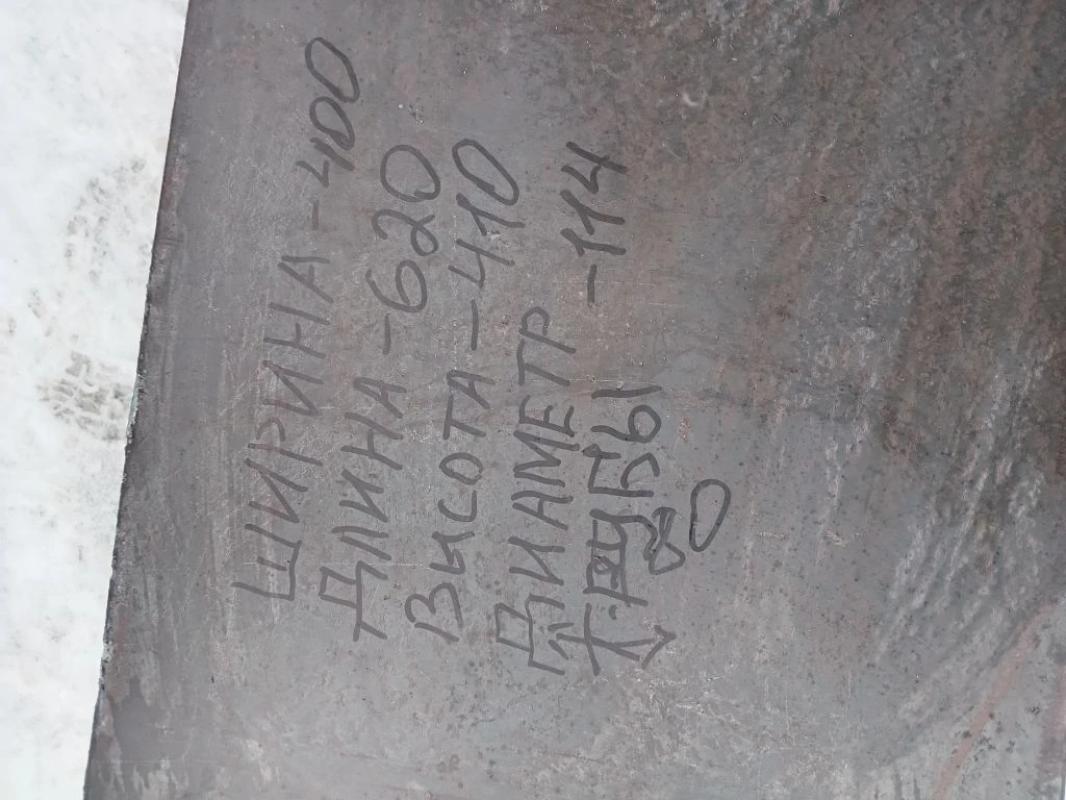 ШИРИНА - 400
ДЛИНА - 620
ВИСОТА - 410
ДИАМЕТР - 114
ТРУБЫ